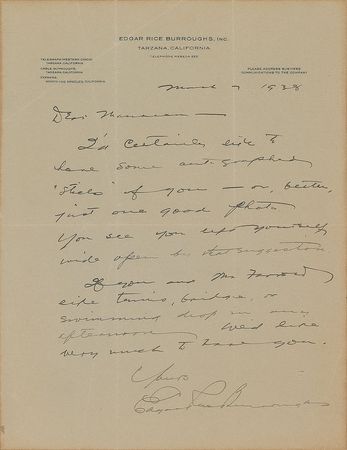 EDGAR RICE BURROUGHS, INC.
TARZANA, CALIFORNIA
TELEPHONE RESEDA
TELEGRAPH WESTERN UNION
TARZANA, CALIFORNIA
CABLE: BURROUGHS,
TARZANA, CALIFORNIA
EXPRESS:
LOS ANGELES, CALIFORNIA
PLEASE ADDRESS BUSINESS
COMMUNICATIONS TO THE COMPANY
March 7 1928
Dear Maureen —
I'd certainly like to
have some autographed
"stills" of you — or, better,
just one good photo
You see you left yourself
wide open by that suggestion
If you and Mr Farrow
like tennis, bridge, or
swimming drop in any
afternoon We'd like
very much to have you.
Yours
Edgar Rice Burroughs